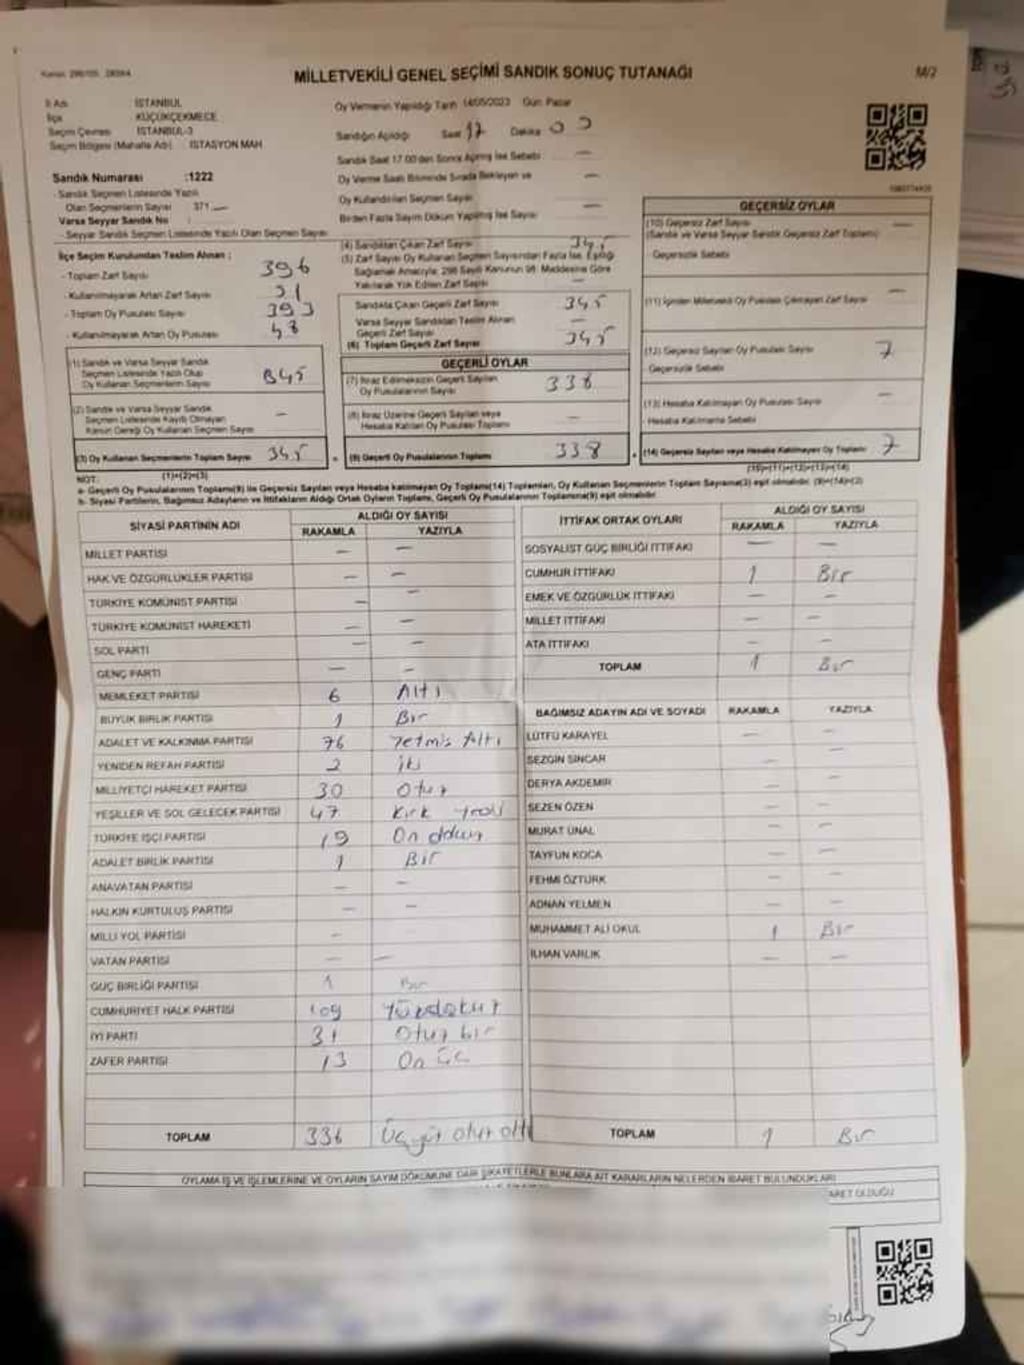 MİLLETVEKİLİ GENEL SEÇİMİ SANDIK SONUÇ TUTANAĞI
M/2
İl Adı : İSTANBUL
İlçe : KÜÇÜKÇEKMECE
Seçim Çevresi : İSTANBUL-3
Seçim Bölgesi (Mahalle Adı) : İSTASYON MAH.
Sandık Numarası :1222
- Sandık Seçmen Listesinde Yazılı
Olan Seçmenlerin Sayısı : 371
Varsa Seyyar Sandık No :
- Seyyar Sandık Seçmen Listesinde Yazılı Olan Seçmen Sayısı
Oy Vermenin Yapıldığı Tarih 14/05/2023 Gün: Pazar
Sandığın Açıldığı Saat 17 Dakika 00
Sandık Saat 17.00'den Sonra Açılmış İse Sebebi : —
Oy Verme Saati Bitiminde Sırada Bekleyen ve
Oy Kullandırılan Seçmen Sayısı —
Birden Fazla Sayım Döküm Yapılmış İse Sayısı —
İlçe Seçim Kurulundan Teslim Alınan ;
- Toplam Zarf Sayısı 396
- Kullanılmayarak Artan Zarf Sayısı 51
- Toplam Oy Pusulası Sayısı 393
- Kullanılmayarak Artan Oy Pusulası 48
(1) Sandık ve Varsa Seyyar Sandık
Seçmen Listesinde Yazılı Olup
Oy Kullanan Seçmenlerin Sayısı 345
(2) Sandık ve Varsa Seyyar Sandık
Seçmen Listesinde Kayıtlı Olmayan
Kanun Gereği Oy Kullanan Seçmen Sayısı —
(3) Oy Kullanan Seçmenlerin Toplam Sayısı 345
(4) Sandıktan Çıkan Zarf Sayısı 345
(5) Zarf Sayısı Oy Kullanan Seçmen Sayısından Fazla İse, Eşitliği
Sağlamak Amacıyla; 298 Sayılı Kanunun 98. Maddesine Göre
Yakılarak Yok Edilen Zarf Sayısı —
Sandıkta Çıkan Geçerli Zarf Sayısı 345
Varsa Seyyar Sandıktan Teslim Alınan
Geçerli Zarf Sayısı —
(6) Toplam Geçerli Zarf Sayısı 345
GEÇERLİ OYLAR
(7) İtiraz Edilmeksizin Geçerli Sayılan
Oy Pusulalarının Sayısı 338
(8) İtiraz Üzerine Geçerli Sayılan veya
Hesaba Katılan Oy Pusulası Toplamı —
(9) Geçerli Oy Pusulalarının Toplamı 338
GEÇERSİZ OYLAR
(10) Geçersiz Zarf Sayısı —
(Sandık ve Varsa Seyyar Sandık Geçersiz Zarf Toplamı)
Geçersizlik Sebebi
(11) İçinden Milletvekili Oy Pusulası Çıkmayan Zarf Sayısı —
(12) Geçersiz Sayılan Oy Pusulası Sayısı 7
Geçersizlik Sebebi
(13) Hesaba Katılmayan Oy Pusulası Sayısı —
- Hesaba Katılmama Sebebi
(14) Geçersiz Sayılan veya Hesaba Katılmayan Oy Toplamı 7
NOT: (1)+(2)=(3) (10)+(11)+(12)+(13)=(14)
a- Geçerli Oy Pusulalarının Toplamı(9) ile Geçersiz veya Hesaba katılmayan Oy Toplamı(14) Toplamları, Oy Kullanan Seçmenlerin Toplam Sayısına(3) eşit olmalıdır. (9)+(14)=(3)
b- Siyasi Partilerin, Bağımsız Adayların ve İttifakların Aldığı Ortak Oyların Toplamı, Geçerli Oy Pusulalarının Toplamına(9) eşit olmalıdır.
SİYASİ PARTİNİN ADI ALDIĞI OY SAYISI
RAKAMLA YAZIYLA
MİLLET PARTİSİ — —
HAK VE ÖZGÜRLÜKLER PARTİSİ — —
TÜRKİYE KOMÜNİST PARTİSİ — —
TÜRKİYE KOMÜNİST HAREKETİ — —
SOL PARTİ — —
GENÇ PARTİ — —
MEMLEKET PARTİSİ 6 Altı
BÜYÜK BİRLİK PARTİSİ 1 Bir
ADALET VE KALKINMA PARTİSİ 76 Yetmiş Altı
YENİDEN REFAH PARTİSİ 2 iki
MİLLİYETÇİ HAREKET PARTİSİ 30 Otuz
YEŞİLLER VE SOL GELECEK PARTİSİ 47 Kırk yedi
TÜRKİYE İŞÇİ PARTİSİ 19 On dokuz
ADALET BİRLİK PARTİSİ 1 Bir
ANAVATAN PARTİSİ — —
HALKIN KURTULUŞ PARTİSİ — —
MİLLİ YOL PARTİSİ — —
VATAN PARTİSİ — —
GÜÇ BİRLİĞİ PARTİSİ 1 Bir
CUMHURİYET HALK PARTİSİ 109 Yüzdokuz
İYİ PARTİ 31 Otuz bir
ZAFER PARTİSİ 13 On üç
TOPLAM 336 Üçyüz otuz altı
İTTİFAK ORTAK OYLARI ALDIĞI OY SAYISI
RAKAMLA YAZIYLA
SOSYALİST GÜÇ BİRLİĞİ İTTİFAKI — —
CUMHUR İTTİFAKI 1 Bir
EMEK VE ÖZGÜRLÜK İTTİFAKI — —
MİLLET İTTİFAKI — —
ATA İTTİFAKI — —
TOPLAM 1 Bir
BAĞIMSIZ ADAYIN ADI VE SOYADI RAKAMLA YAZIYLA
LÜTFÜ KARAYEL — —
SEZGİN SİNCAR — —
DERYA AKDEMİR — —
SEZEN ÖZEN — —
MURAT ÜNAL — —
TAYFUN KOCA — —
FEHMİ ÖZTÜRK — —
ADNAN YELMEN — —
MUHAMMET ALİ OKUL 1 Bir
İLHAN VARLIK — —
TOPLAM 1 Bir
OYLAMA İŞ VE İŞLEMLERİNE VE OYLARIN SAYIM DÖKÜMÜNE DAİR ŞİKAYETLERLE BUNLARA AİT KARARLARIN NELERDEN İBARET BULUNDUKLARI